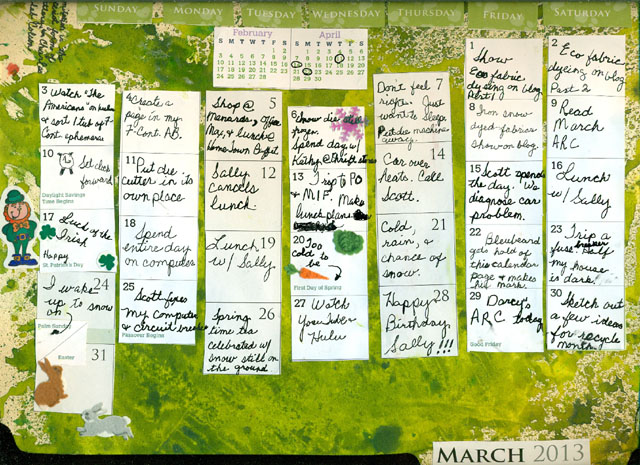 SUNDAY MONDAY TUESDAY WEDNESDAY THURSDAY FRIDAY SATURDAY
February
S M T W T F S
1 2
3 4 5 6 7 8 9
10 11 12 13 14 15 16
17 18 19 20 21 22 23
24 25 26 27 28
April
S M T W T F S
1 2 3 4 5 6
7 8 9 10 11 12 13
14 15 16 17 18 19 20
21 22 23 24 25 26 27
28 29 30
1
Show
Eco fabric
dyeing on blog
Part 1
2
Eco fabric
dyeing on blog
Part 2
3 Watch "The
Americans" on
& sort 1 tub of
Cont. ephemera
4 Create a
page in my
7-Cont. AB.
Shop @ 5
Menards, Office
Max, & lunch @
HomeTown Buffet
6
Snow die
Spend day w/
Kathy @ thrift stores
Dont feel 7
right. Just
want to sleep.
Put die machine
away.
8 Iron snow
dyed fabrics
Show on blog.
9 Read
March
ARC
10
Set clock
forward
Daylight Savings
Time Begins
11 Put die
cutter in its
own place.
Sally 12
cancels
lunch.
13 Trip to PO
& M.I.F. Make
lunch plans
14
Car over
heats. Call
Scott.
15 Scott spends
the day. We
diagnose car
problem.
16
Lunch
w/ Sally
17 Luck of the
Irish
Happy
St. Patrick's Day
18
Spend
entire day
on computer
Lunch 19
w/ Sally
20 Too
cold to
be
First Day of Spring
Cold, 21
rain, &
chance of
snow.
22 Bluebeard
gets hold of
this calendar
page & makes
his mark.
23 Trip a
fuse. Half
my house
is dark.
24
I wake
up to snow
on
Palm Sunday
25
Scott fixes
my computer
& circuit breaker
Passover Begins
Spring 26
time tea
celebrated w/
snow still on
the ground
27 Watch
YouTube &
Hulu
Happy 28
Birthday
Sally!!!
29 Darcy's
ARC today
Good Friday
30 Sketch out
a few ideas
for recycle
month.
Easter
31
MARCH 2013